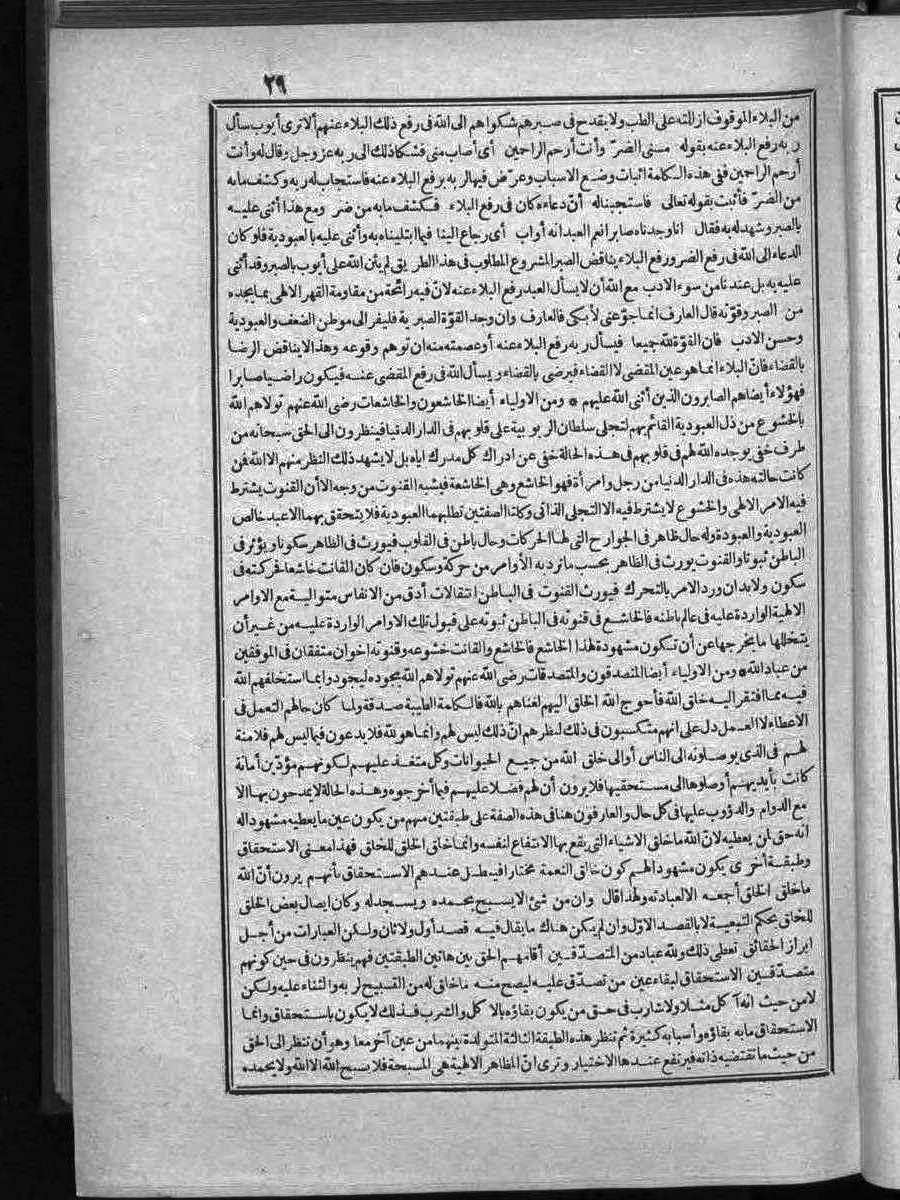 ٢٩
من البلاء الموقوف ازالته على الطب ولا يقدح فى صبرهم شكواهم الى الله فى رفع ذلك البلاء عنهم ألا ترى أيوب سأل
ربه رفع البلاء عنه بقوله مسنى الضرّ وأنت أرحم الراحمين أى أصاب منى فشكا ذلك الى ربه عز وجل وقال له وأنت
أرحم الراحمين ففى هذه الكلمة اثبات وضع الاسباب وعرّض فيها لربه برفع البلاء عنه فاستجاب له ربه وكشف ما به
من الضرّ فأثبت بقوله تعالى فاستجبنا له أنّ دعاءه كان فى رفع البلاء فكشف ما به من ضر ومع هذا أثنى عليه
بالصبر وشهد له به فقال انا وجدناه صابرا نعم العبد انه أواب أى رجاع الينا فيما ابتليناه به وأثنى عليه بالعبودية فلو كان
الدعاء الى الله فى رفع الضر ورفع البلاء يناقض الصبر المشروع المطلوب فى هذا الطريق لم يثن الله على أيوب بالصبر وقد أثنى
عليه به بل عندنا من سوء الادب مع الله أن لا يسأل العبد رفع البلاء عنه لانّ فيه رائحة من مقاومة القهر الالهى بما يجده
من الصبر وقوّته قال العارف انما جوّعنى لأبكى فالعارف وان وجد القوّة الصبرية فليفر الى موطن الضعف والعبودية
وحسن الادب فان القوّة لله جميعا فيسأل ربه رفع البلاء عنه أو عصمته منه ان توهم وقوعه وهذا لا يناقض الرضا
بالقضاء فانّ البلاء انما هو عين المقضى لا القضاء فيرضى بالقضاء ويسأل الله فى رفع المقضى عنه فيكون راضيا صابرا
فهؤلاء أيضا هم الصابرون الذين أثنى الله عليهم * ومن الاولياء أيضا الخاشعون والخاشعات رضى الله عنهم تولاهم الله
بالخشوع من ذل العبودية القائم بهم لتجلى سلطان الربوبية على قلوبهم فى الدار الدنيا فينظرون الى الحق سبحانه من
طرف خفى يوجده الله لهم فى قلوبهم فى هذه الحالة خفى عن ادراك كل مدرك اياه بل لا يشهد ذلك النظر منهم الا الله فمن
كانت حالته هذه فى الدار الدنيا من رجل وامرأة فهو الخاشع وهى الخاشعة فيشبه القنوت من وجه الا أن القنوت يشترط
فيه الامر الالهى والخشوع لا يشترط فيه الا التجلى الذاتى وكلتا الصفتين تطلبهما العبودية فلا يتحقق بهما الا عبد خالص
العبودية والعبودة وله حال ظاهر فى الجوارح التى لها الحركات وحال باطن فى القلوب فيورث فى الظاهر سكونا ويؤثر فى
الباطن ثبوتا والقنوت يورث فى الظاهر بحسب ما ترد به الأوامر من حركة وسكون فان كان القانت خاشعا فحركته فى
سكون ولا بد ان ورد الامر بالتحرك فيورث القنوت فى الباطن انتقالات أدق من الانفاس متوالية مع الاوامر
الالهية الواردة عليه فى عالم باطنه فالخاشع فى قنوته فى الباطن ثبوته على قبول تلك الاوامر الواردة عليه من غير أن
يتخللها ما يخرجها عن أن تكون مشهودة لهذا الخاشع فالخاشع والقانت خشوعه وقنوته اخوان متفقان فى الموفقين
من عباد الله * ومن الاولياء أيضا المتصدقون والمتصدقات رضى الله عنهم تولاهم الله بجوده ليجودوا بما استخلفهم الله
فيه مما افتقر اليه خلق الله فأحوج الله الخلق اليهم لغناهم بالله فالكلمة الطيبة صدقة ولما كان حالهم التعمل فى
الاعطاء لا العمل دل على انهم متكسبون فى ذلك لنظرهم انّ ذلك ليس لهم وانما هو لله فلا يدعون فيما ليس لهم فلا منة
لهم فى الذى يوصلونه الى الناس أو الى خلق الله من جميع الحيوانات وكل متغذ عليهم لكونهم مؤدّين أمانة
كانت بأيديهم أوصلوها الى مستحقيها فلا يرون أن لهم فضلا عليهم فيما أخرجوه وهذه الحالة لا يمدحون بها الا
مع الدوام والدؤوب عليها فى كل حال والعارفون هنا فى هذه الصفة على طبقتين منهم من يكون عين ما يعطيه مشهودا له
انه حق لمن يعطيه لانّ الله ما خلق الاشياء التى يقع بها الانتفاع لنفسه وانما خلق الخلق للخلق فهذا معنى الاستحقاق
وطبقة أخرى يكون مشهودا لهم كون خالق النعمة مختارا فيبطل عندهم الاستحقاق بأنهم يرون أنّ الله
ما خلق الخلق أجمعه الا لعبادته ولهذا قال وان من شئ الا يسبح بحمده ويسجد له وكان ايصال بعض الخلق
للخلق بحكم التبعية لا بالقصد الاوّل وان لم يكن هناك ما يقال فيه قصد أول ولا ثان ولكن العبارات من أجل
ابراز الحقائق تعطى ذلك ولله عباد من المتصدّقين أقامهم الحق بين هاتين الطبقتين فهم ينظرون فى حين كونهم
متصدّقين الاستحقاق لبقاء عين من تصدّق عليه ليصح منه ما خلق له من التسبيح لربه والثناء عليه ولكن
لا من حيث انه آكل مثلا ولا شارب فى حق من يكون بقاؤه بالاكل والشرب فذلك لا يكون باستحقاق وانما
الاستحقاق ما به بقاؤه وأسبابه كثيرة ثم تنظر هذه الطبقة الثالثة المتولدة بينهما من عين آخر معا وهو أن تنظر الى الحق
من حيث ما تقتضيه ذاته فيرتفع عندها الاختيار وترى انّ المظاهر الالهية هى المسبحة فلا يسبح الله الا الله ولا يحمده